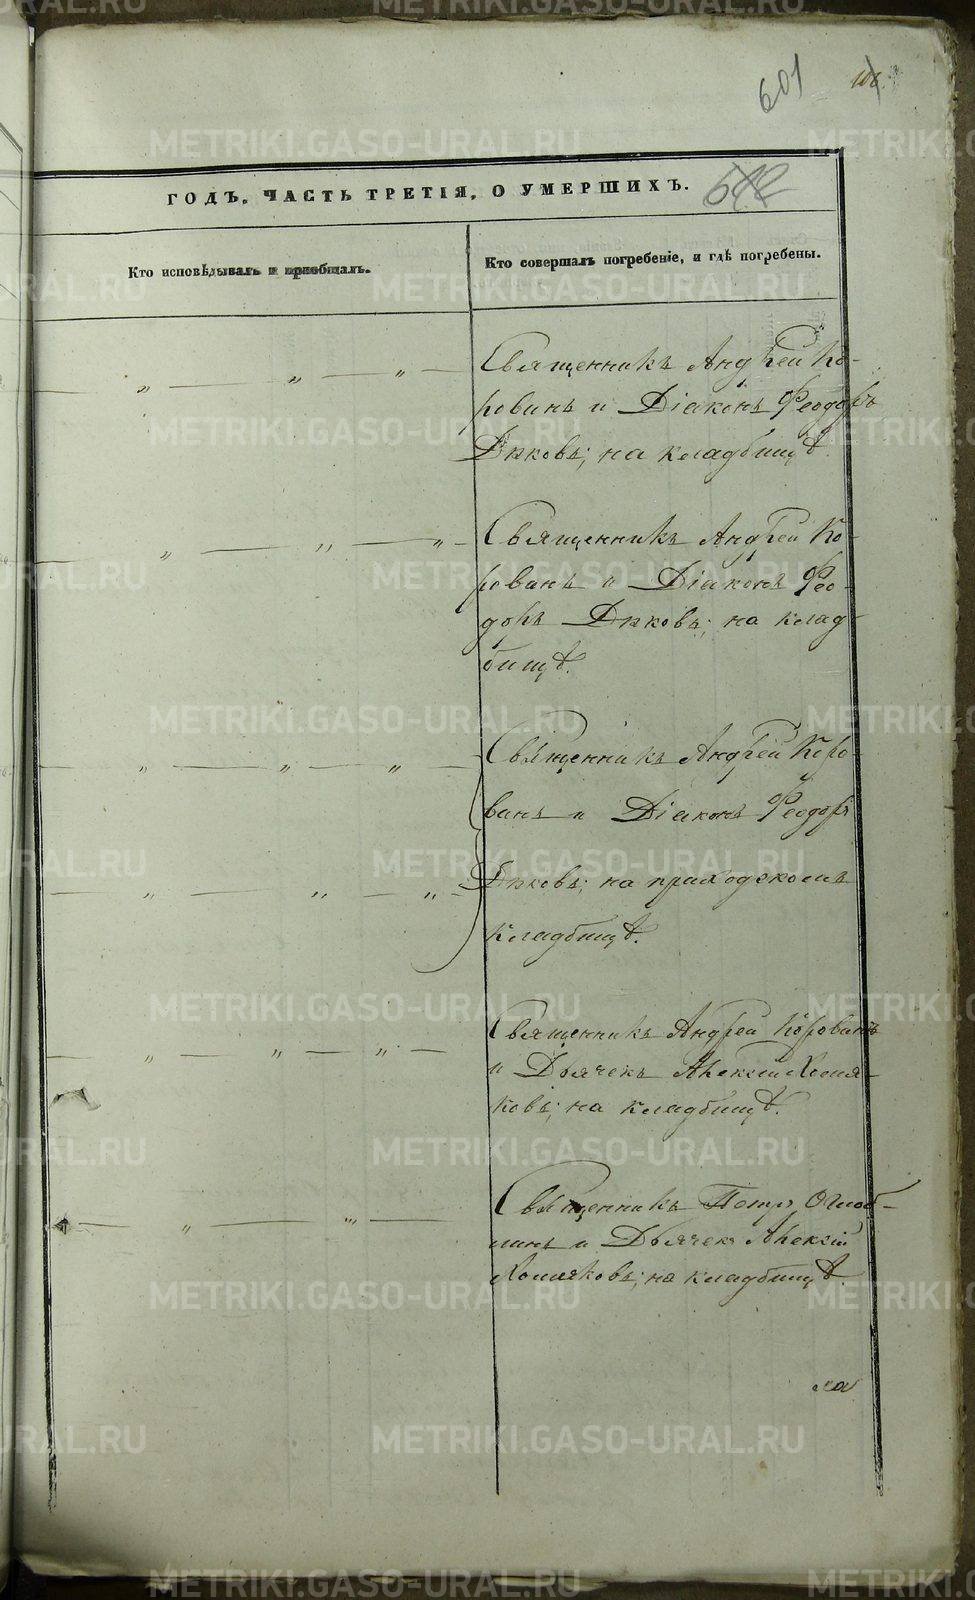 601
ГОДЪ. ЧАСТЬ ТРЕТІЯ, О УМЕРШИХЪ.
Кто исповѣдывалъ и приобщалъ.
Кто совершалъ погребеніе, и гдѣ погребены.
Священникъ Андрей Ко-
ровинъ и Діаконъ Феодоръ
на кладбищѣ.
Священникъ Андрей Ко-
ровинъ и Діаконъ Фео-
доръ на клад-
бищѣ.
Священникъ Андрей Коро-
винъ и Діаконъ Феодоръ
на приходскомъ
кладбищѣ.
Священникъ Андрей Коровинъ
и Дьячекъ Алексій Хомя-
ковъ; на кладбищѣ.
Священникъ Петръ Оглоб-
линъ и Дьячекъ Алексій
Хомяковъ; на кладбищѣ.
METRIKI.GASO-URAL.RU